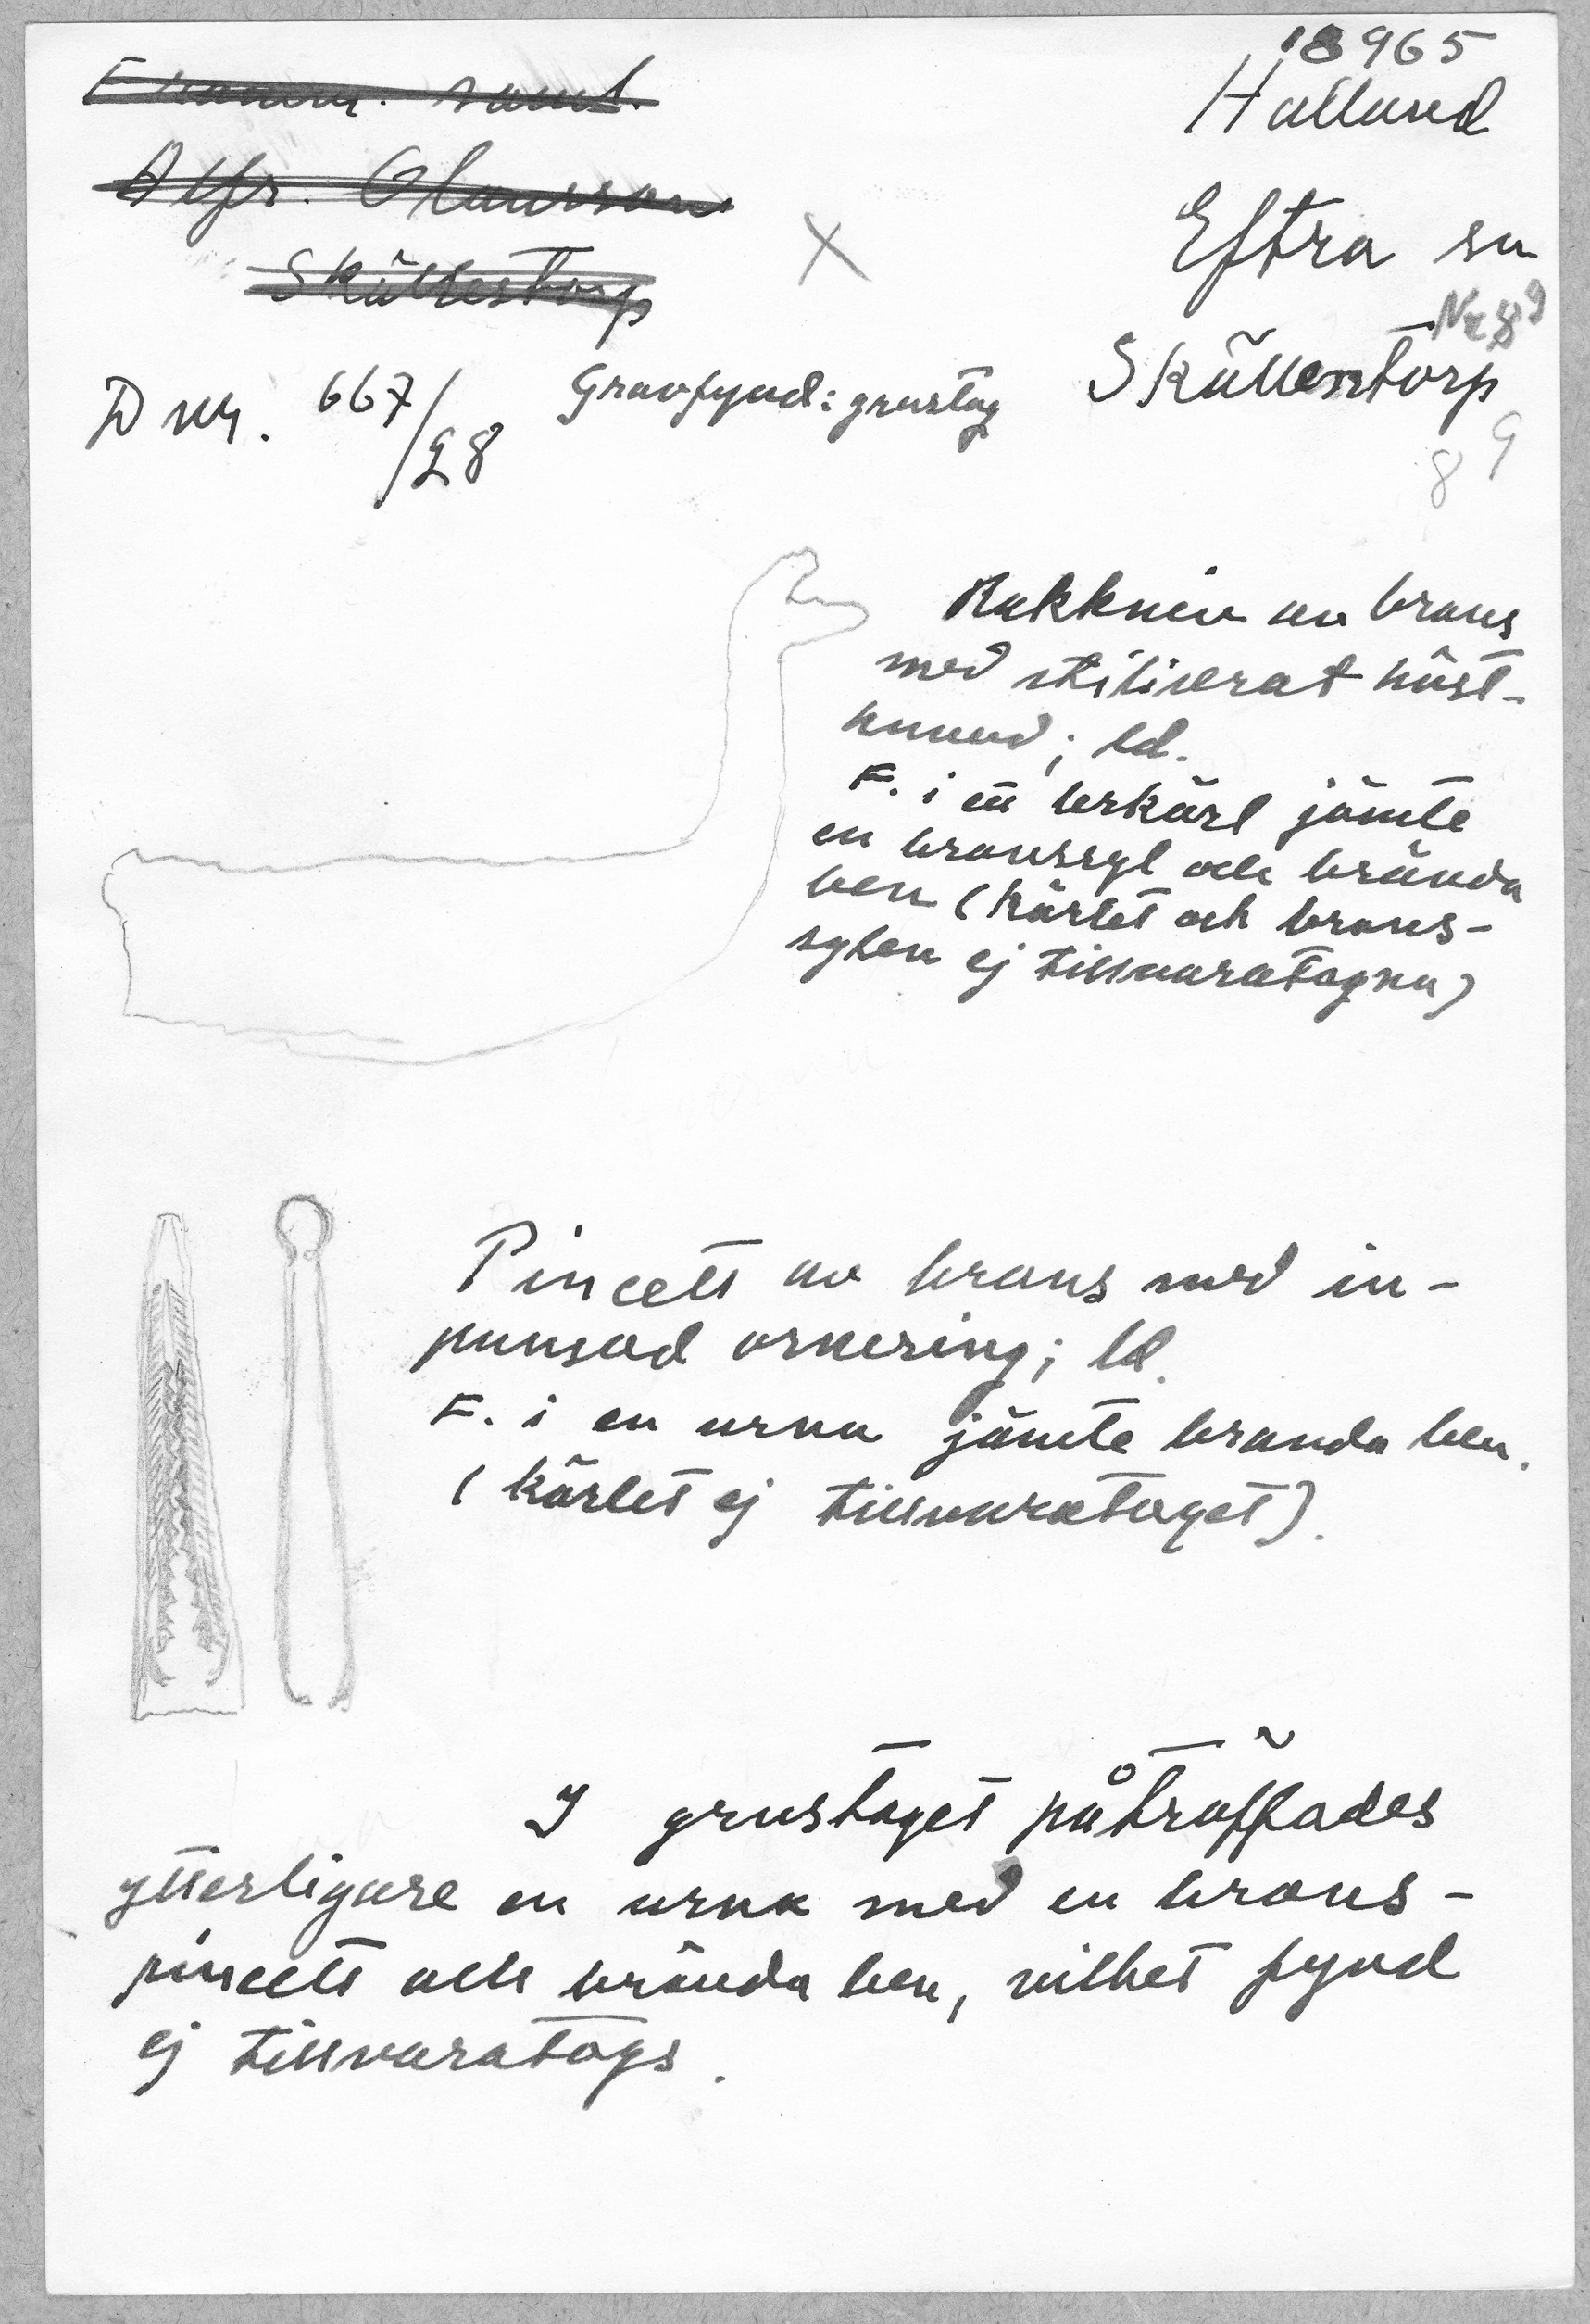 18965
Halland
Eftra sn
Nr 89
Skällentorp
89
F hamm. saml.
Alfr. Olausson
Skällestorp
X
D nr. 667/28
Gravfynd: grustag
Rakkniv av brons
med stiliserat häst-
huvud; ld.
F. i ett lerkärl jämte
en bronssyl och brända
ben (kärlet och brons-
sylen ej tillvaratagna)
Pincett av brons med in-
punsad ornering; ld.
F. i en urna jämte branda ben.
(kärlet ej tillvarataget).
I grustaget påträffades
ytterligare en urna med en brons-
pincett och brända ben, vilket fynd
ej tillvaratogs.